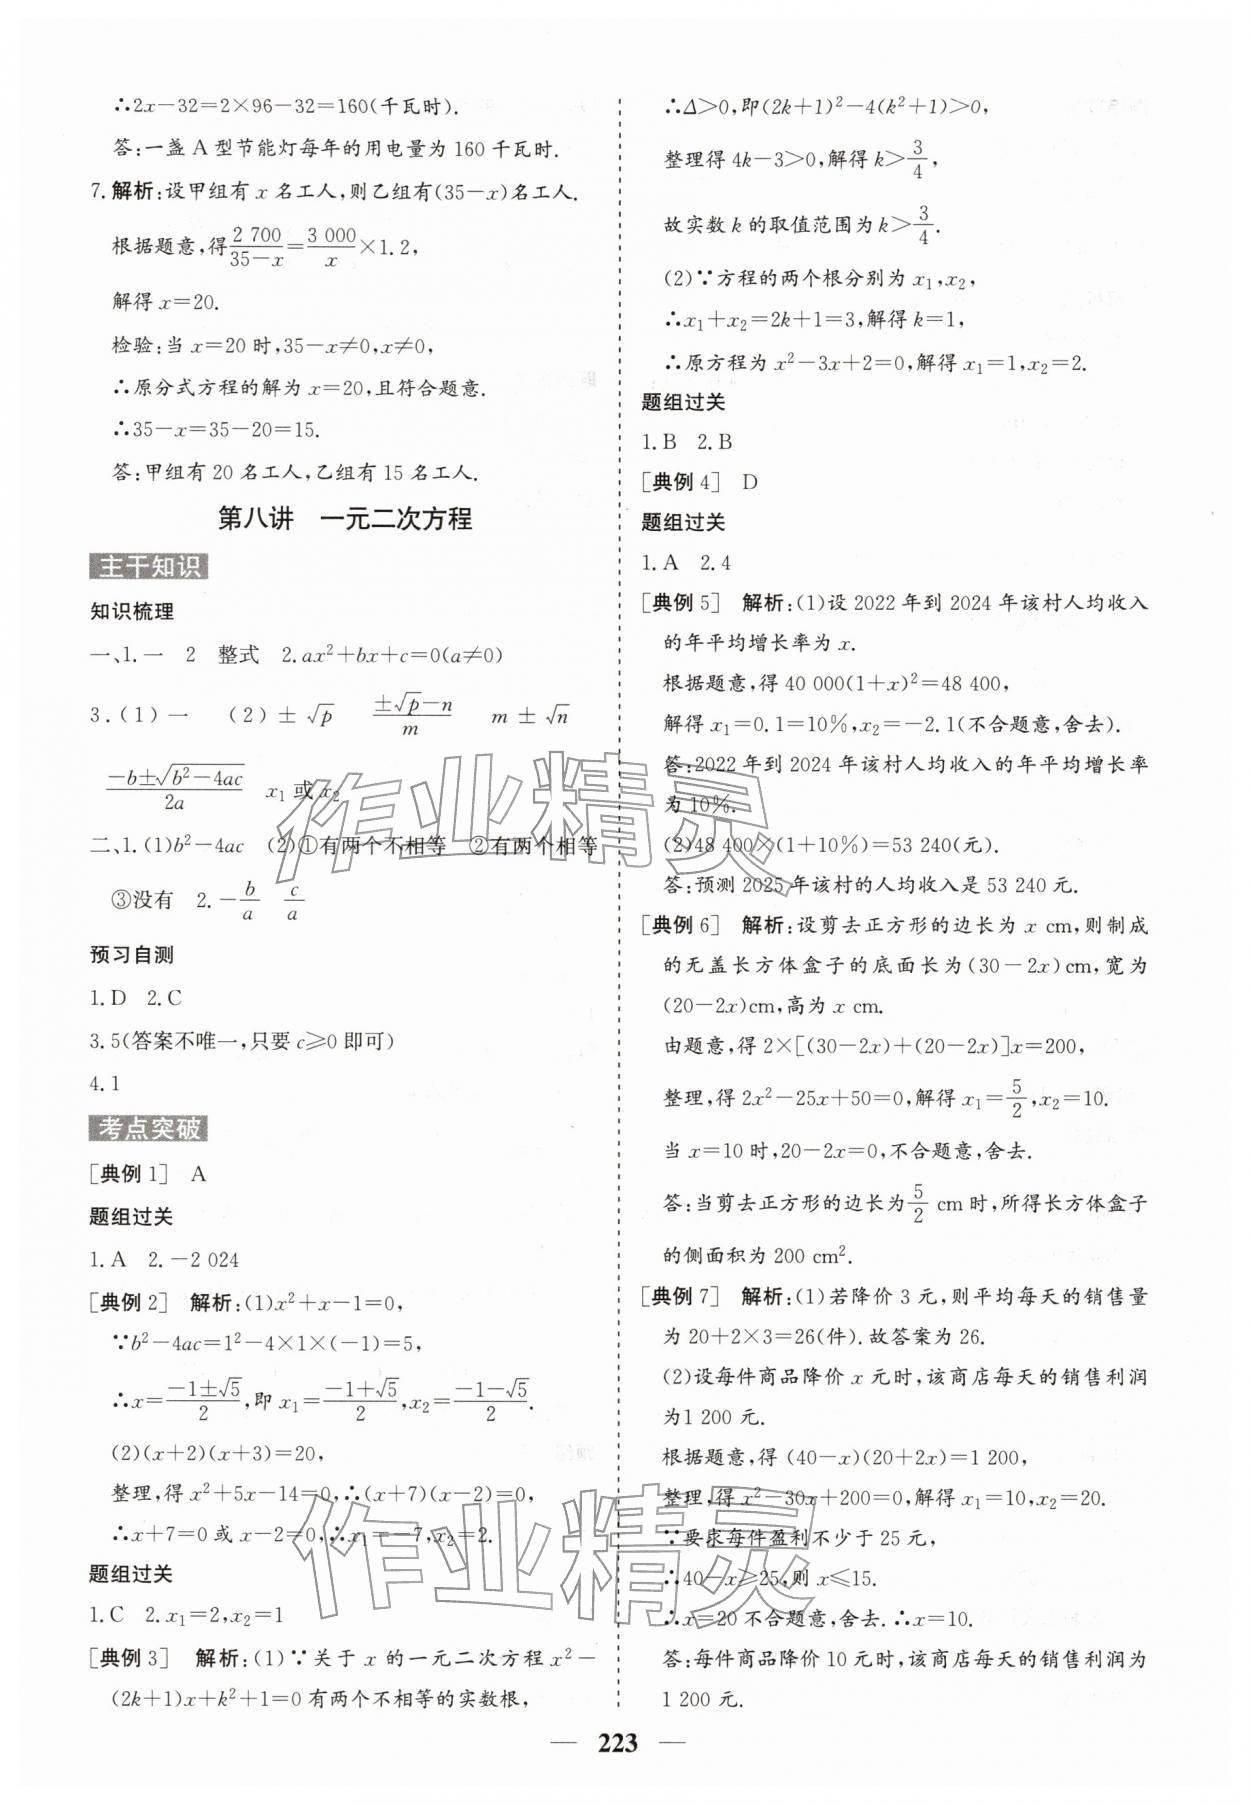 ∴2x−32=2×96−32=160(千瓦时).
答:一盏 A 型节能灯每年的用电量为 160 千瓦时.
7. 解析:设甲组有 x 名工人,则乙组有(35−x)名工人.
根据题意,得 2 700/(35−x)=3 000/x×1.2,
解得 x=20.
检验:当 x=20 时,35−x≠0,x≠0,
∴原分式方程的解为 x=20,且符合题意.
∴35−x=35−20=15.
答:甲组有 20 名工人,乙组有 15 名工人.
第八讲 一元二次方程
主干知识
知识梳理
一、1.一 2 整式 2.ax²+bx+c=0(a≠0)
3.(1)一 (2)±√p (±√p−n)/m m±√n
(−b±√(b²−4ac))/2a x₁ 或 x₂
二、1.(1)b²−4ac (2)①有两个不相等 ②有两个相等
③没有 2.−b/a c/a
预习自测
1.D 2.C
3.5(答案不唯一,只要 c≥0 即可)
4.1
考点突破
[典例 1] A
题组过关
1.A 2.−2 024
[典例 2] 解析:(1)x²+x−1=0,
∵b²−4ac=1²−4×1×(−1)=5,
∴x=(−1±√5)/2,即 x₁=(−1+√5)/2,x₂=(−1−√5)/2.
(2)(x+2)(x+3)=20,
整理,得 x²+5x−14=0,∴(x+7)(x−2)=0,
∴x+7=0 或 x−2=0,∴x₁=−7,x₂=2.
题组过关
1.C 2.x₁=2,x₂=1
[典例 3] 解析:(1)∵关于 x 的一元二次方程 x²−
(2k+1)x+k²+1=0 有两个不相等的实数根,
∴Δ>0,即(2k+1)²−4(k²+1)>0,
整理得 4k−3>0,解得 k>3/4,
故实数 k 的取值范围为 k>3/4.
(2)∵方程的两个根分别为 x₁,x₂,
∴x₁+x₂=2k+1=3,解得 k=1,
∴原方程为 x²−3x+2=0,解得 x₁=1,x₂=2.
题组过关
1.B 2.B
[典例 4] D
题组过关
1.A 2.4
[典例 5] 解析:(1)设 2022 年到 2024 年该村人均收入
的年平均增长率为 x.
根据题意,得 40 000(1+x)²=48 400,
解得 x₁=0.1=10%,x₂=−2.1(不合题意,舍去).
答:2022 年到 2024 年该村人均收入的年平均增长率
为 10%.
(2)48 400×(1+10%)=53 240(元).
答:预测 2025 年该村的人均收入是 53 240 元.
[典例 6] 解析:设剪去正方形的边长为 x cm,则制成
的无盖长方体盒子的底面长为(30−2x)cm,宽为
(20−2x)cm,高为 x cm.
由题意,得 2×[(30−2x)+(20−2x)]x=200,
整理,得 2x²−25x+50=0,解得 x₁=5/2,x₂=10.
当 x=10 时,20−2x=0,不合题意,舍去.
答:当剪去正方形的边长为 5/2 cm 时,所得长方体盒子
的侧面积为 200 cm².
[典例 7] 解析:(1)若降价 3 元,则平均每天的销售量
为 20+2×3=26(件).故答案为 26.
(2)设每件商品降价 x 元时,该商店每天的销售利润
为1 200 元.
根据题意,得 (40−x)(20+2x)=1 200,
整理,得 x²−30x+200=0,解得 x₁=10,x₂=20.
∵要求每件盈利不少于 25 元,
∴40−x≥25,则 x≤15.
∴x=20 不合题意,舍去.∴x=10.
答:每件商品降价 10 元时,该商店每天的销售利润为
1 200 元.
— 223 —
作业精灵
作业精灵